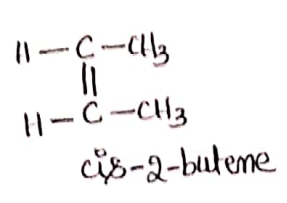 H-C-CH3
||
H-C-CH3
cis-2-butene